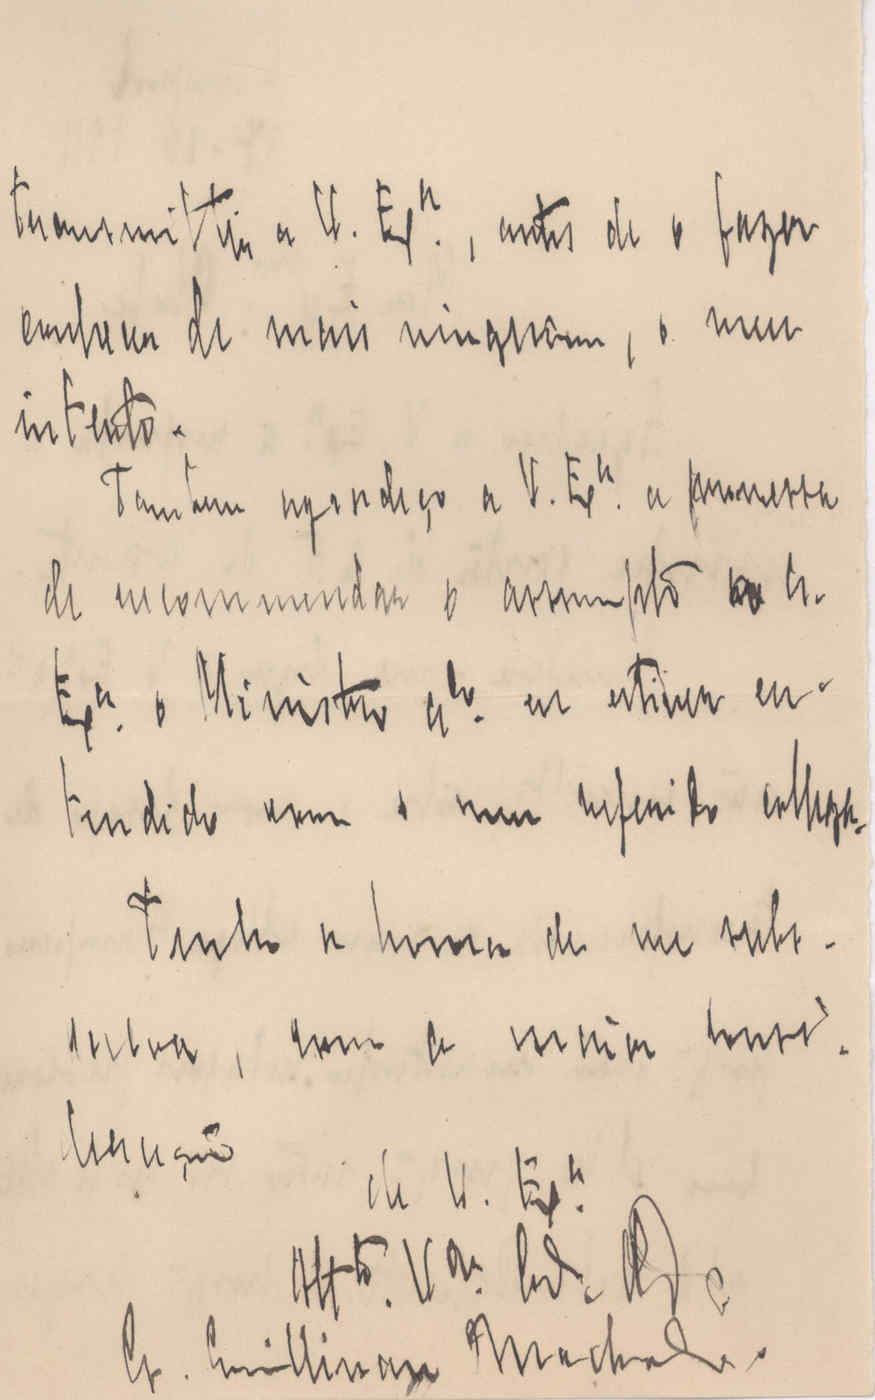 transmitta a V. Exª., antes de o fazer
conhecer de mais ninguem, o meu
intento.
Tambem agradeço a V. Exª. a promessa
de recommendar o assumpto a S.
Exª. o Ministro qdo. eu estiver en-
tendido com o meu referido collega.
Tenho a honra de me subs-
crever, com a maior consi-
deração
de V. Exª.
Attº. Vºr. Cdº. Obgº
G. Machado.